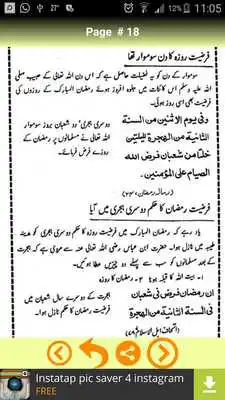 27°
11:05
Page # 18
فرضیت روزہ کا دن سوموار تھا
سوموار کے دن کو یہ فضیلت حاصل ہے کہ اس دن اللہ تعالیٰ کے حبیب صلی
اللہ علیہ وسلم اس کائنات میں جلوہ افروز ہوئے رمضان المبارک کے روزوں کی
فرضیت بھی اسی روز ہوئی۔
وفی یوم الاثنین من السنة
الثانیة من الهجرة للیلتین
خلتا من شعبان فرض الله
الصیام علی المؤمنین۔
دوسری ہجری دو شعبان بروز سوموار
اللہ تعالیٰ نے مسلمانوں پر رمضان کے
روزے فرض فرمائے۔
فرضیت رمضان کا حکم دوسری ہجری میں آیا
یاد رہے کہ رمضان المبارک میں فرضیت روزہ کا حکم دوسری ہجری کو مدینہ
طیبہ میں نازل ہوا۔ حضرت ابن عباس رضی اللہ تعالیٰ عنہ سے مروی ہے کہ ہجرت
کے بعد مسلمانوں کو سب سے پہلے دو چیزیں عطا ہوئیں۔
۱- بیت اللہ کا قبلہ ہونا ۲- رمضان کا روزہ
ان رمضان فرض فی شعبان
فی السنة الثانیة من الهجرة
ہجرت کے دوسرے سال شعبان میں
رمضان کا حکم نازل ہوا۔
Instatap pic saver 4 instagram
FREE